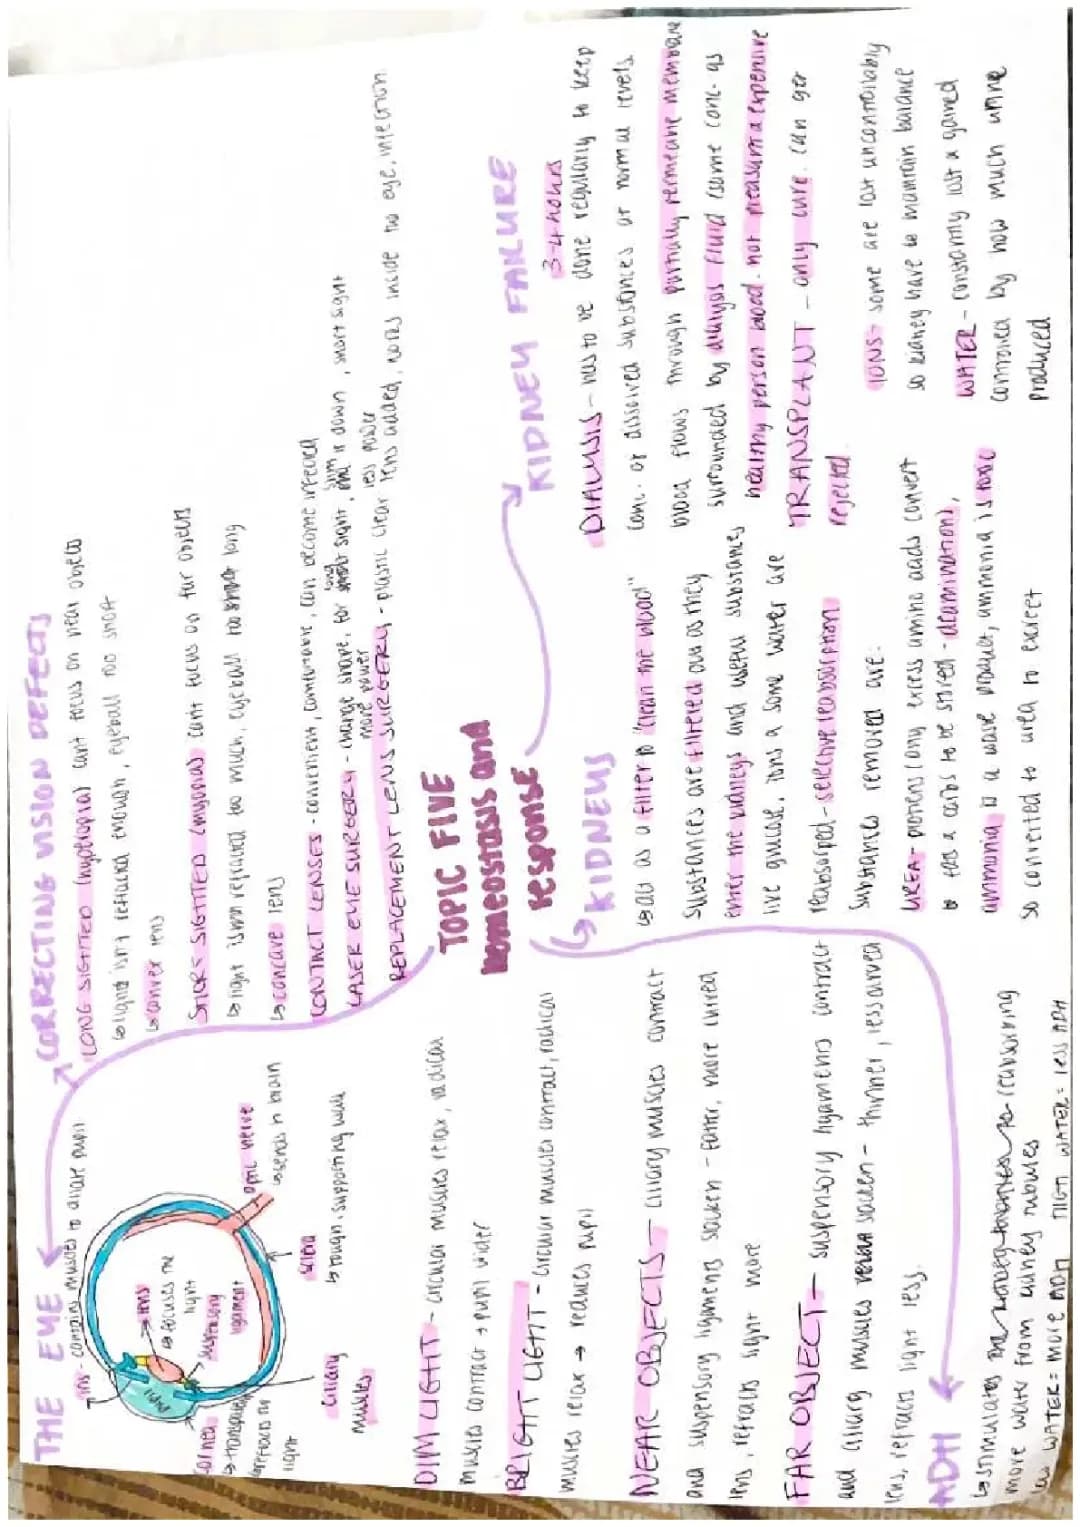 THE EYE
iris - contains muscles to dilate pupil
cornea
↳ transparent
↳ refracts the
light
light
→ lens
↳ focuses the
light
→ suspensory
ligament
ciliary
muscles
sclera
↳ tough, supporting wall
optic nerve
↳ sends to brain
DIM LIGHT - circular muscles relax, radical
muscles contract → pupil wider
BRIGHT LIGHT - circular muscles contract, radical
muscles relax → reduces pupil
NEAR OBJECTS - ciliary muscles contract
and suspensory ligaments slacken - fatter, more curved
lens, refracts light more
FAR OBJECT - suspensory ligaments contract
and ciliary muscles slacken - thinner, less curved
lens, refracts light less.
ADH
↳ stimulates reabsorbing
more water from kidney tubules
low WATER = more ADH HIGH WATER = less ADH
CORRECTING VISION DEFECTS
LONG SIGHTED (hyperopia) cant focus on near objects
↳ light isn't refracted enough, eyeball too short
↳ convex lens
SHORT SIGHTED (myopia) cant focus on far objects
↳ light refracted too much, eyeball too long
↳ concave lens
CONTACT LENSES - convenient, comfortable, can become infected
LASER EYE SURGERY - change shape, for long sight, slim it down, short sight
more power less power
REPLACEMENT LENS SURGERY - plastic clear lens added, works inside the eye, infection.
TOPIC FIVE
homeostasis and
response
KIDNEYS
↳ act as a filter to "clean the blood"
substances are filtered out as they
enter the kidneys and useful substances
like glucose, ions & some water are
reabsorbed - selective reabsorption
substances removed are:
UREA - proteins (any excess amino acids convert
to fats & carbs to be stored - deamination),
ammonia is a waste product, ammonia is toxic
so converted to urea to excrete
KIDNEY FAILURE
3-4 hours
DIALYSIS - has to be done regularly to keep
conc. of dissolved substances at normal levels.
blood flows through partially permeable membrane
surrounded by dialysis fluid (same conc. as
healthy person blood. not pleasant & expensive
TRANSPLANT - only cure. can get
rejected.
IONS - some are lost uncontrollably
so kidney have to maintain balance
WATER - constantly lost & gained
controlled by how much urine
produced